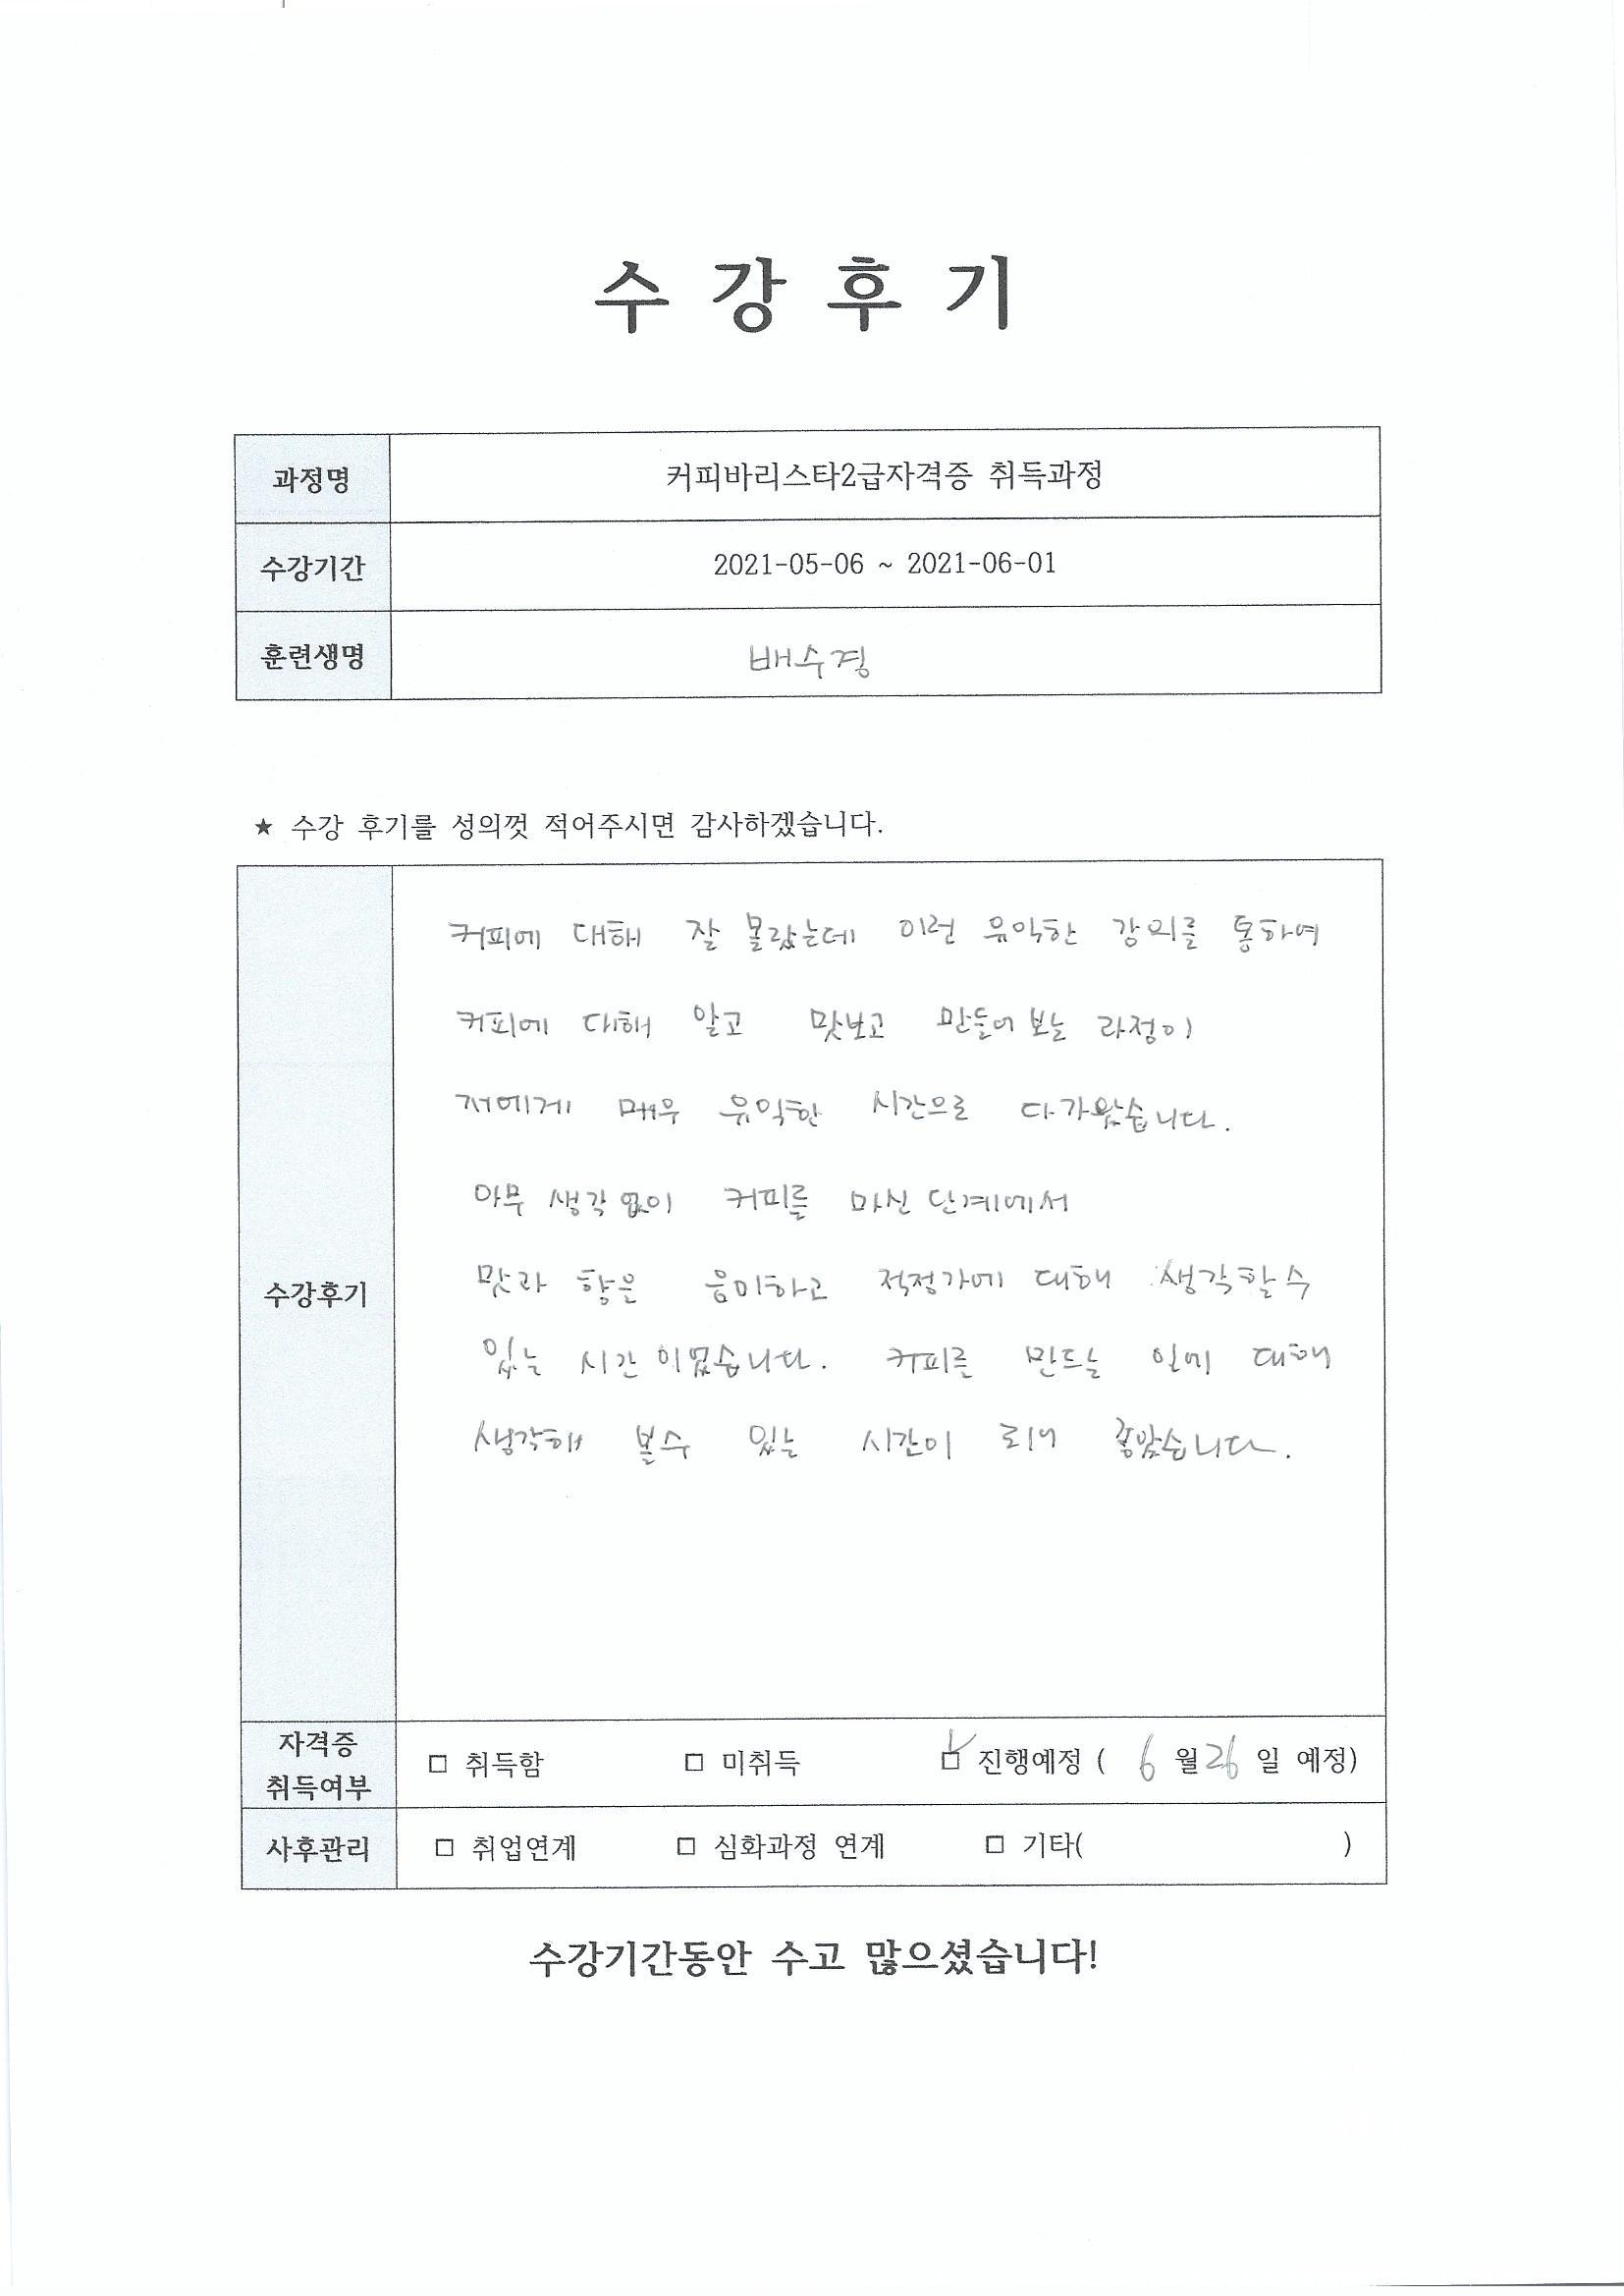 수강후기
과정명 커피바리스타2급자격증 취득과정
수강기간 2021-05-06 ~ 2021-06-01
훈련생명 배수경
★ 수강 후기를 성의껏 적어주시면 감사하겠습니다.
커피에 대해 잘 몰랐는데 이런 유익한 강의를 통하여
커피에 대해 알고 맛보고 만들어 보는 과정이
저에게 매우 유익한 시간으로 다가왔습니다.
아무 생각 없이 커피를 마신 단계에서
맛과 향은 음미하고 적정가에 대해 생각할 수
수강후기
있는 시간 이였습니다. 커피를 만드는 일에 대해
생각해 볼수 있는 시간이 되어 좋았습니다.
자격증
취득여부
□ 취득함 □ 미취득 □ 진행예정 ( 6 월 26 일 예정)
사후관리 □ 취업연계 □ 심화과정 연계 □ 기타( )
수강기간동안 수고 많으셨습니다!